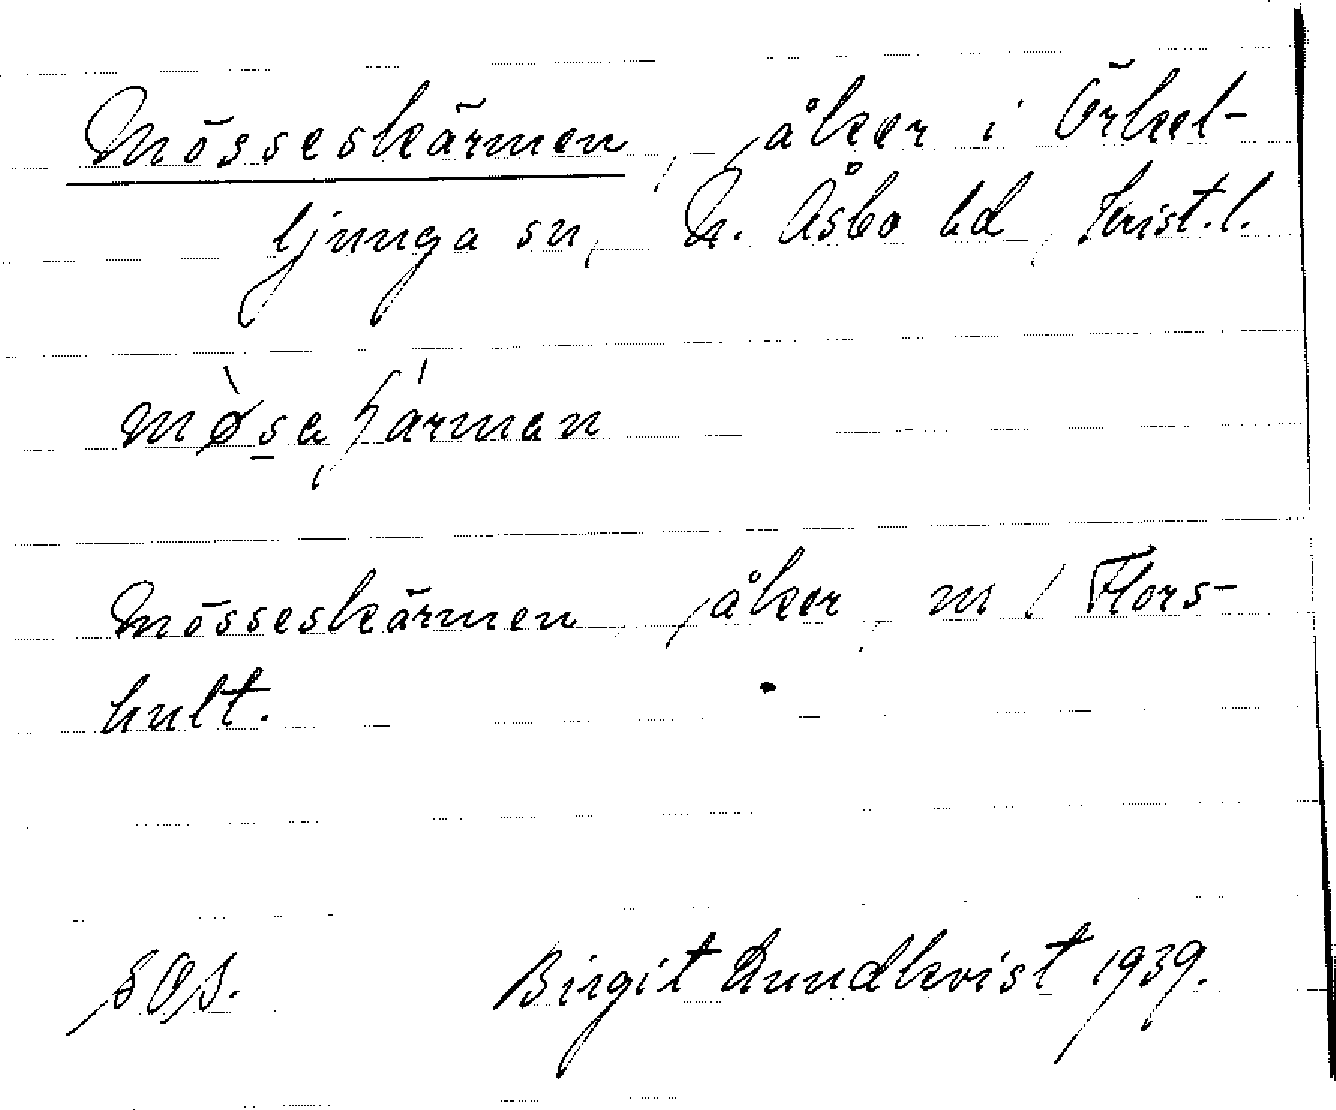 Mösseskärmen, åker i Örkel-
ljunga sn, N. Åsbo hd, Krist. l.
mø̀saʃárman
Mösseskärmen, åker, m / Flors-
hult.
SOA. Birgit Lundkvist 1939.